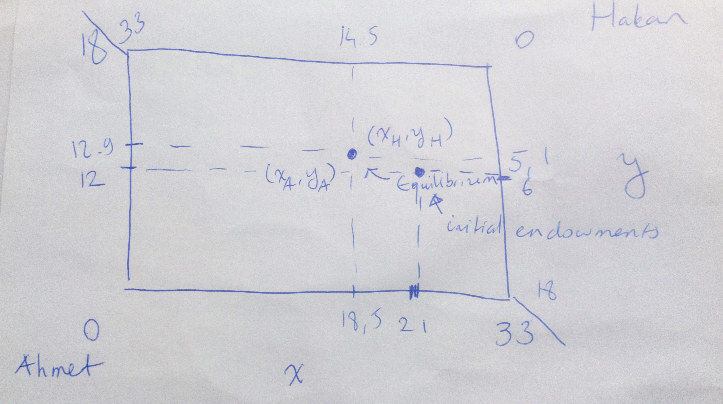 Hakan
18 33
14.5
0
12.9
(xH, yH)
5,1
12
(xA, yA)
Equilibrium
6
y
initial endowments
18
18,5
21
33
0
Ahmet
x